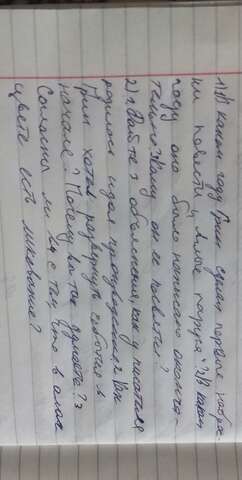 1) В каком году Грин сделал первые наброс
ки повести "Алые паруса"? В каком
году оно было написано оконча-
тельно? Кому он ее посвятил?
2) Найдите объяснения, как у писателя
родилась идея произведения. Как
Грин хотел развернуть события в
начале? Почему вы так думаете? 3
Согласны ли вы с тем что в алом
цвете есть ликование?